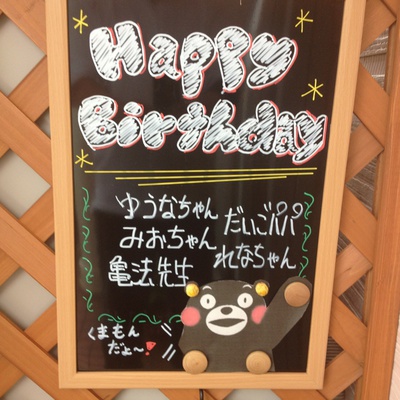 Happy
Birthday
ゆうなちゃん だいごパパ
みおちゃん れなちゃん
亀法先生
くまもん
だょ〜!